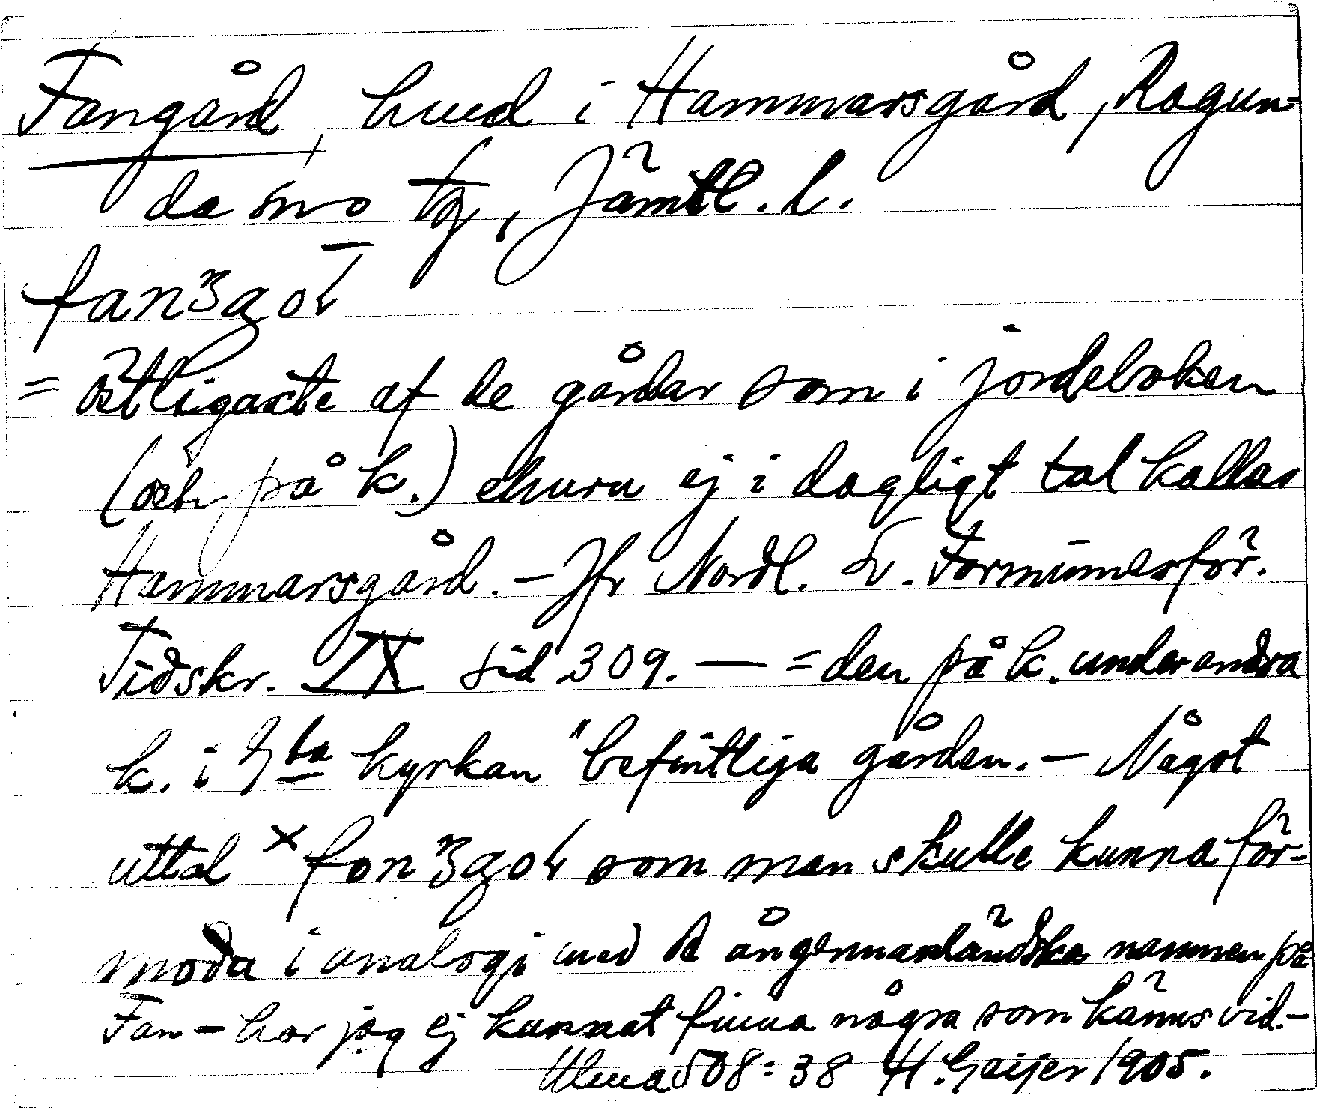 Fangård, hmd i Hammarsgård, Ragun-
da sn o tg, Jämtl. l.
fanʒgoɫ
= östligaste af de gårdar som i jordeboken
(och på k.) ehuru ej i dagligt tal kallas
Hammarsgård. – Jfr Nordl. Fornminnesför.
Tidskr. IX sid 309. — = den på k. under andra
k. i kyrkan "befintliga gården. – Något
uttal ˣfonʒgoɫ som man skulle kunna för-
moda i analogi med de ångermanländska namnen på
Fan – har jag ej kunnat finna några som känns vid. –
Ulma 508:38 H. Geijer 1905.